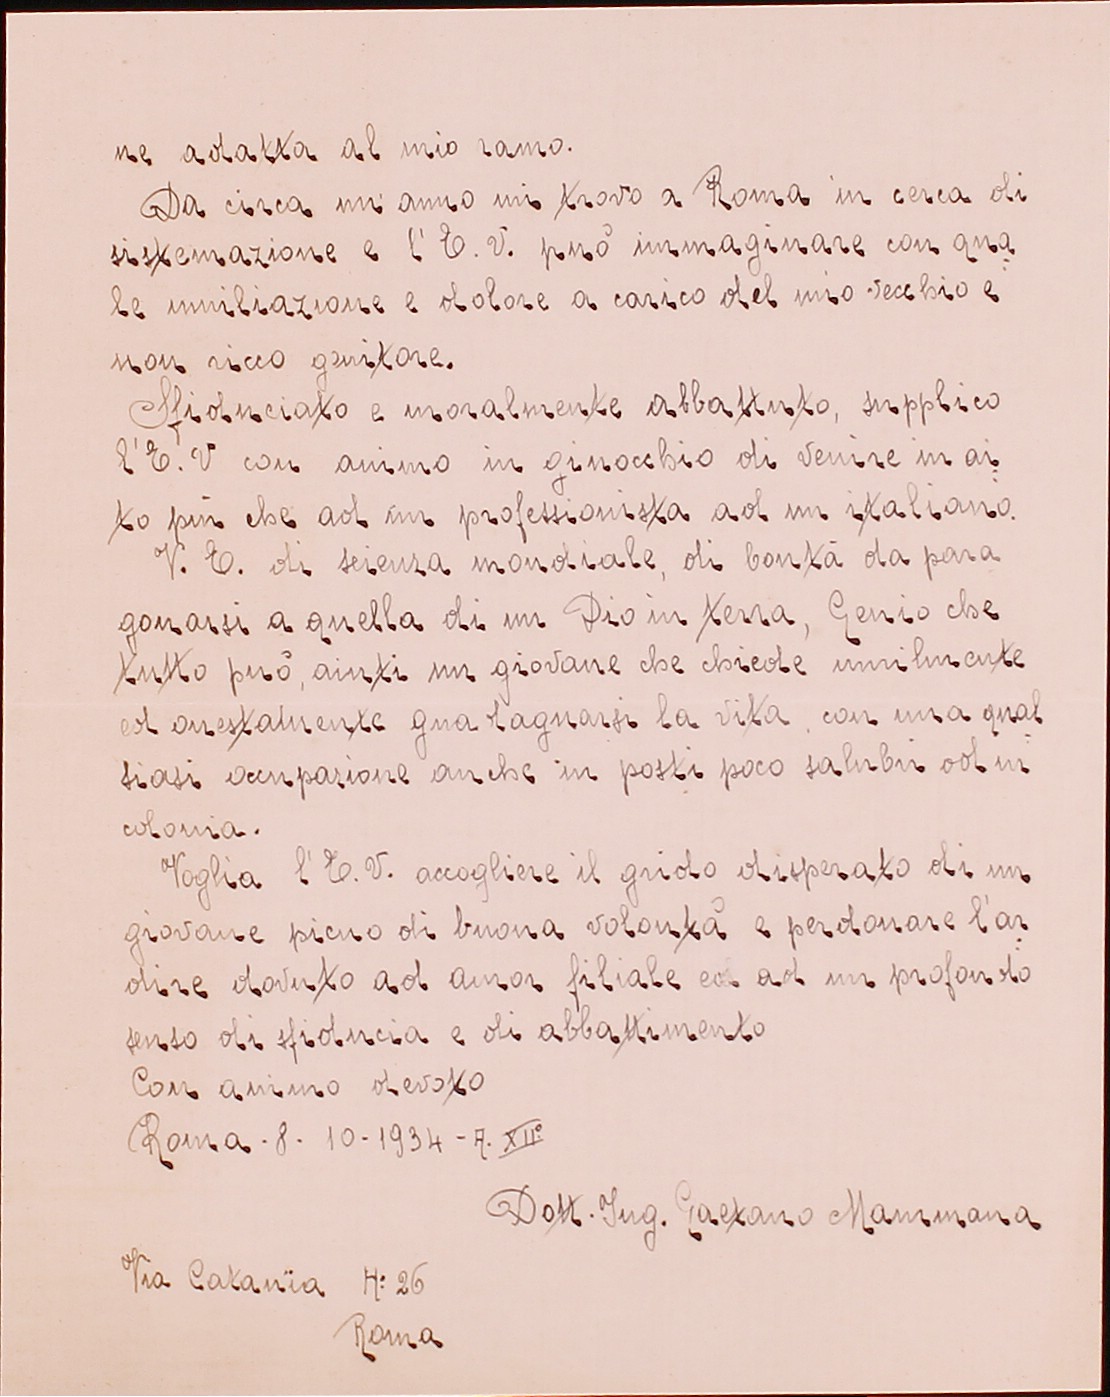 ne adatta al mio ramo.
Da circa un anno mi trovo a Roma in cerca di
sistemazione e l' E. V. può immaginare con qua
le umiliazione e dolore a carico del mio vecchio e
non ricco genitore.
Sfiduciato e moralmente abbattuto, supplico
l'E. V con animo in ginocchio di venire in ai
to più che ad un professionista ad un italiano.
V. E. di scienza mondiale, di bontà da para
gonarsi a quella di un Dio in terra, Genio che
tutto può, aiuti un giovane che chiede umilmente
ed onestamente guadagnarsi la vita, con una qual
siasi occupazione anche in posti poco salubri od in
colonia.
Voglia l' E. V. accogliere il grido disperato di un
giovane pieno di buona volontà e perdonare l'ar
dire dovuto ad amor filiale ed ad un profondo
senso di sfiducia e di abbattimento
Con animo devoto
Roma - 8 - 10 - 1934 - A. XII°
Dott. Ing. Gaetano Mammana
Via Catania N: 26
Roma